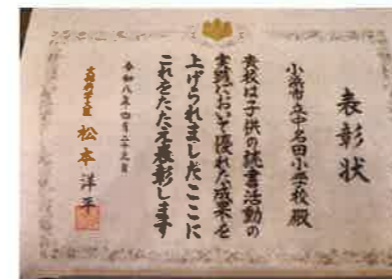 表彰状
小浜市立中名田小学校 殿
貴校は子供の読書活動の
実践において優れた成果を
上げられましたここに
これをたたえ表彰します
令和八年四月二十三日
文部科学大臣 松本洋平